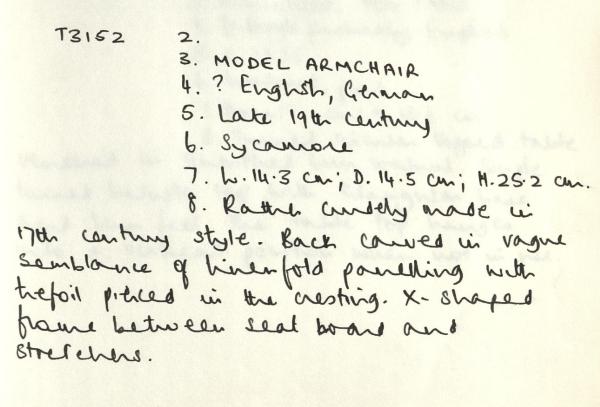 T3152 2.
3. MODEL ARMCHAIR
4. ? English, German
5. Late 19th century
6. Sycamore
7. W.14.3 cm; D.14.5 cm; H.25.2 cm.
8. Rather crudely made in
17th century style. Back carved in vague
semblance of linenfold panelling with
trefoil pierced in the cresting. X-shaped
frame between seat board and
stretchers.